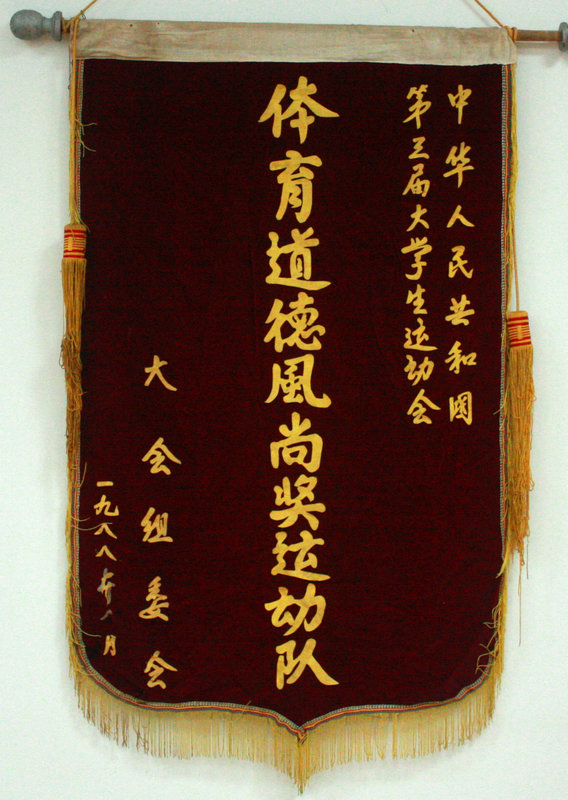 中华人民共和国
第三届大学生运动会
体育道德風尚奖运动队
大会组委会
一九八八年八月